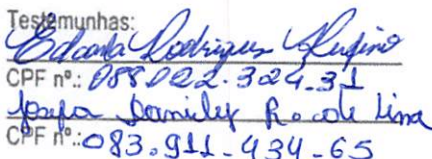 Testemunhas:
Rodrigues Rufino
CPF nº.: 088.022.324-31
Josefa R. de Lima
CPF nº.: 083.911.434-65